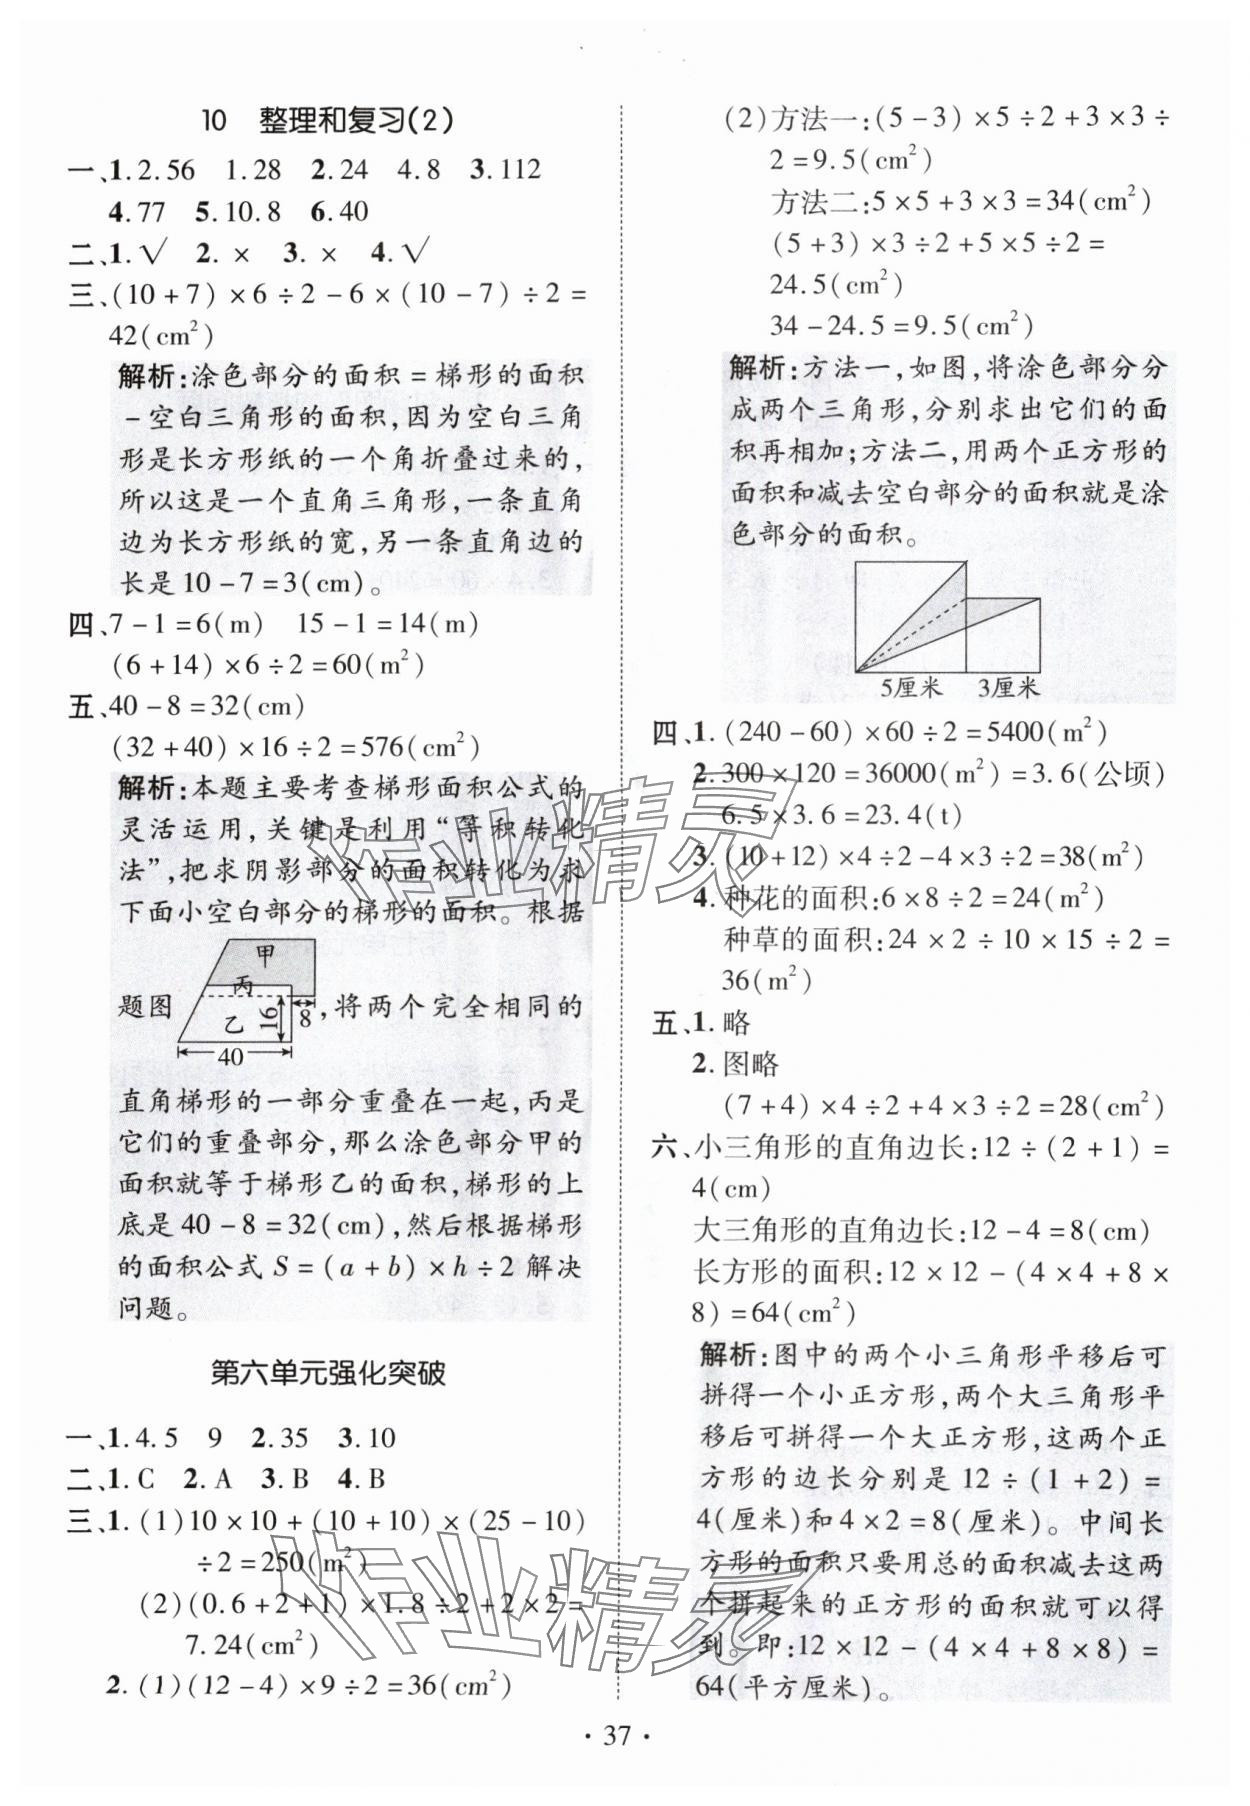 10 整理和复习(2)
一、1.2.56 1.28 2.24 4.8 3.112
4.77 5.10.8 6.40
二、1.√ 2.× 3.× 4.√
三、(10+7)×6÷2-6×(10-7)÷2=
42(cm²)
解析:涂色部分的面积=梯形的面积
-空白三角形的面积,因为空白三角
形是长方形纸的一个角折叠过来的,
所以这是一个直角三角形,一条直角
边为长方形纸的宽,另一条直角边的
长是10-7=3(cm)。
四、7-1=6(m) 15-1=14(m)
(6+14)×6÷2=60(m²)
五、40-8=32(cm)
(32+40)×16÷2=576(cm²)
解析:本题主要考查梯形面积公式的
灵活运用,关键是利用“等积转化
法”,把求阴影部分的面积转化为求
下面小空白部分的梯形的面积。根据
甲
丙
乙
16
8
40
题图,将两个完全相同的
直角梯形的一部分重叠在一起,丙是
它们的重叠部分,那么涂色部分甲的
面积就等于梯形乙的面积,梯形的上
底是40-8=32(cm),然后根据梯形
的面积公式S=(a+b)×h÷2解决
问题。
第六单元强化突破
一、1.4.5 9 2.35 3.10
二、1.C 2.A 3.B 4.B
三、1.(1)10×10+(10+10)×(25-10)
÷2=250(m²)
(2)(0.6+2+1)×1.8÷2+2×2=
7.24(cm²)
2.(1)(12-4)×9÷2=36(cm²)
(2)方法一:(5-3)×5÷2+3×3÷
2=9.5(cm²)
方法二:5×5+3×3=34(cm²)
(5+3)×3÷2+5×5÷2=
24.5(cm²)
34-24.5=9.5(cm²)
解析:方法一,如图,将涂色部分分
成两个三角形,分别求出它们的面
积再相加;方法二,用两个正方形的
面积和减去空白部分的面积就是涂
色部分的面积。
5厘米 3厘米
四、1.(240-60)×60÷2=5400(m²)
2.300×120=36000(m²)=3.6(公顷)
6.5×3.6=23.4(t)
3.(10+12)×4÷2-4×3÷2=38(m²)
4.种花的面积:6×8÷2=24(m²)
种草的面积:24×2÷10×15÷2=
36(m²)
五、1.略
2.图略
(7+4)×4÷2+4×3÷2=28(cm²)
六、小三角形的直角边长:12÷(2+1)=
4(cm)
大三角形的直角边长:12-4=8(cm)
长方形的面积:12×12-(4×4+8×
8)=64(cm²)
解析:图中的两个小三角形平移后可
拼得一个小正方形,两个大三角形平
移后可拼得一个大正方形,这两个正
方形的边长分别是12÷(1+2)=
4(厘米)和4×2=8(厘米)。中间长
方形的面积只要用总的面积减去这两
个拼起来的正方形的面积就可以得
到。即:12×12-(4×4+8×8)=
64(平方厘米)。
·37·
作业精灵
作业精灵